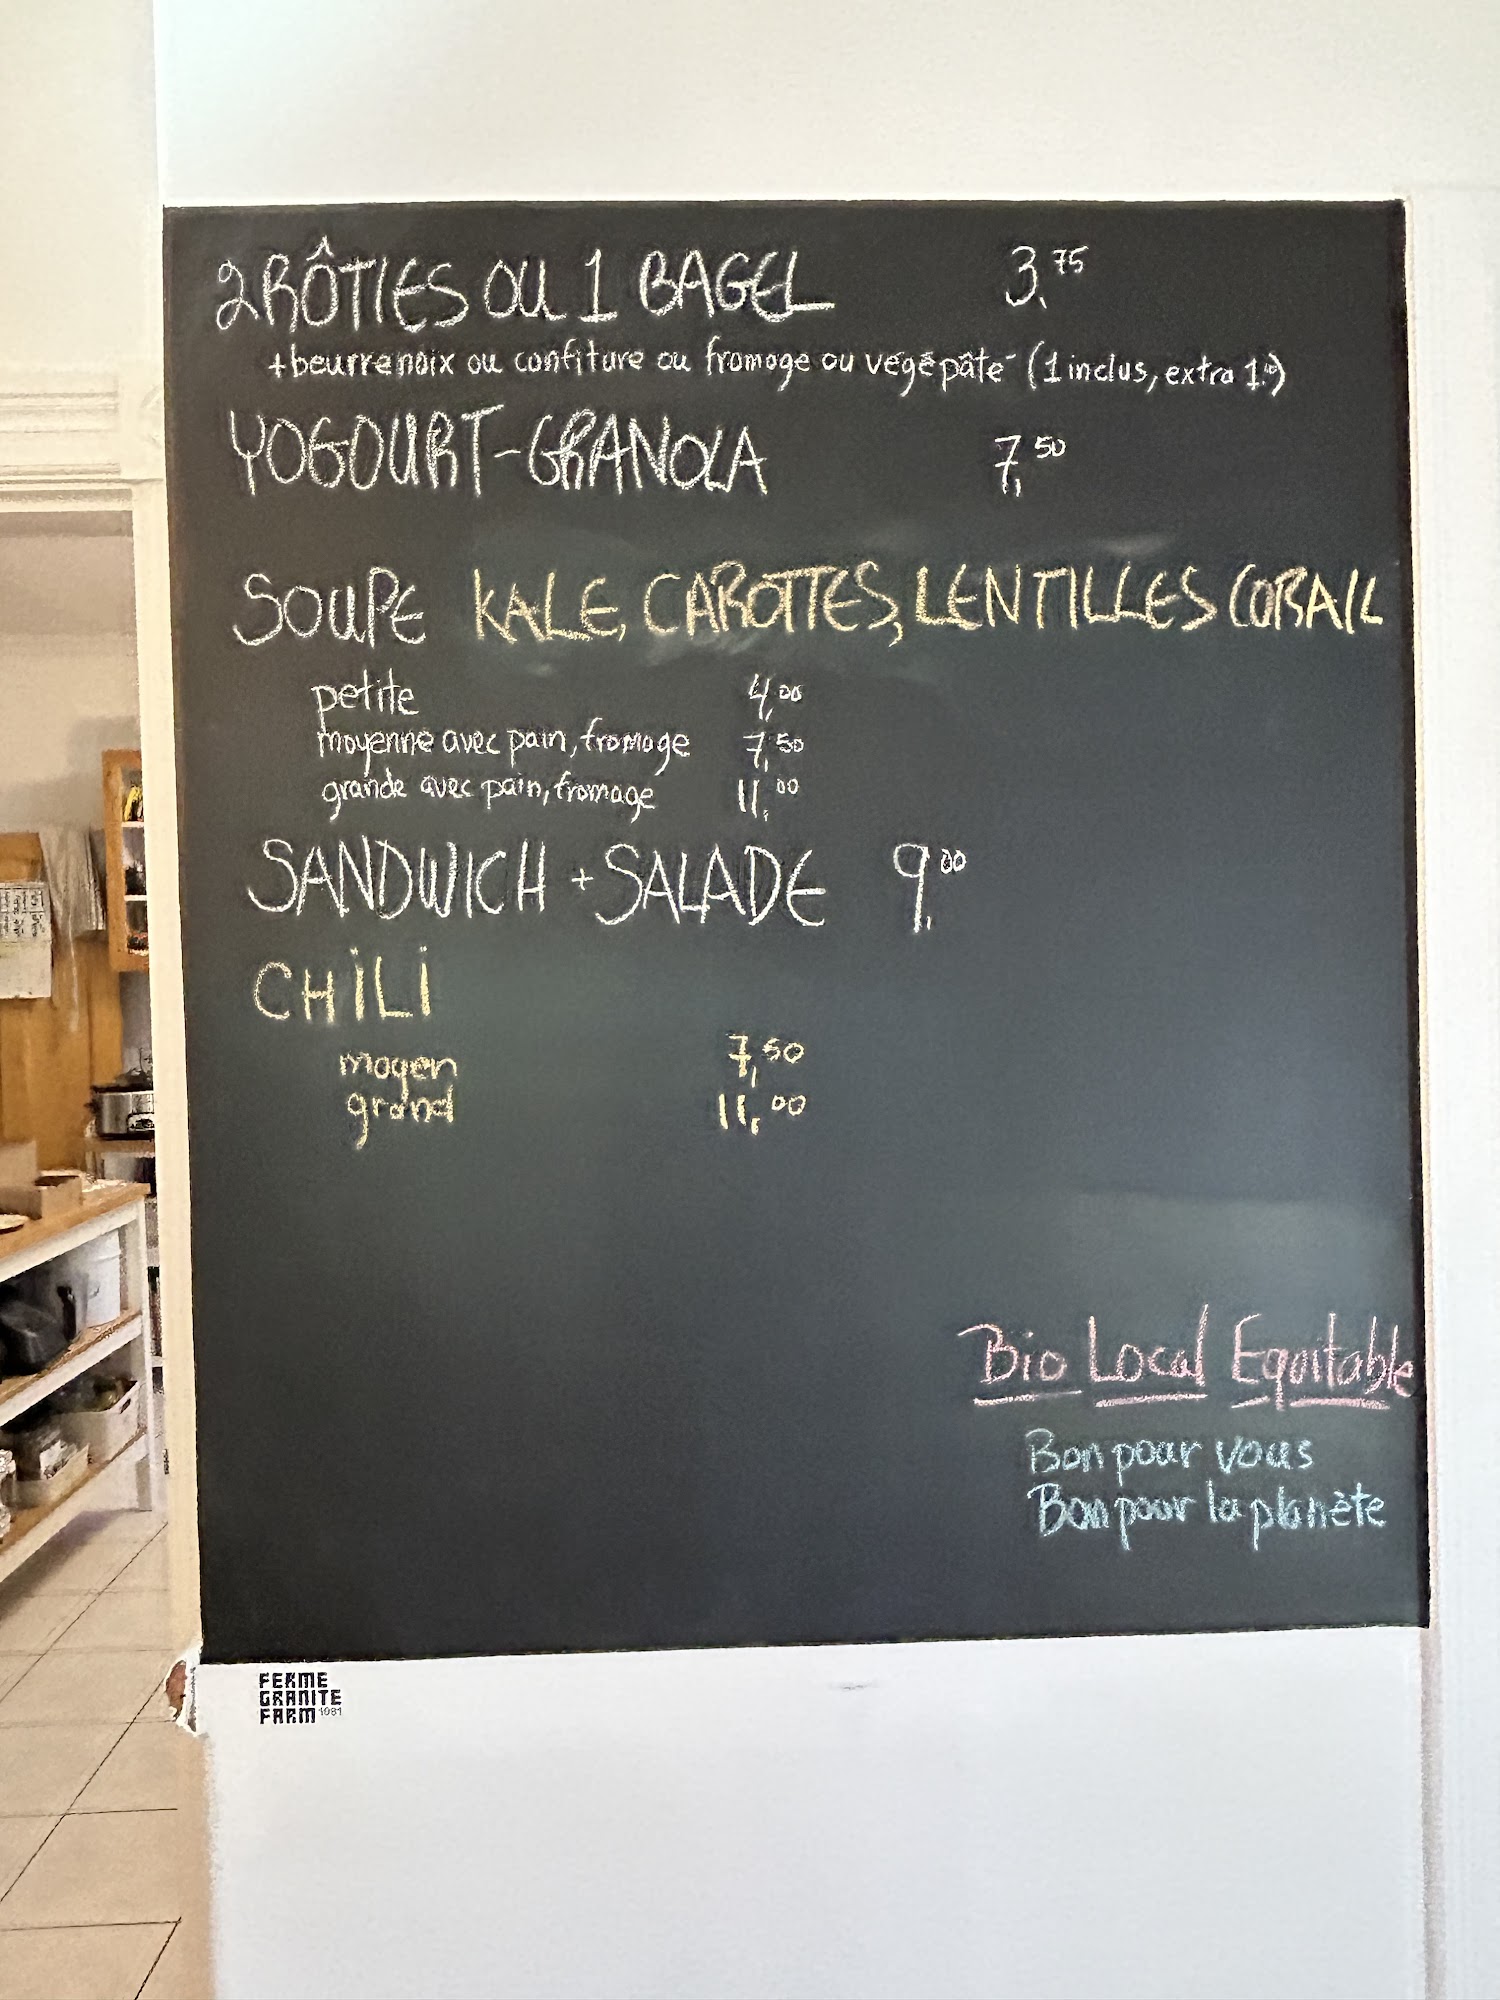 2 RÔTIES OU 1 BAGEL 3,75
+ beurre noix ou confiture ou fromage ou végépâté (1 inclus, extra 1.)
YOGOURT-GRANOLA 7,50
SOUPE KALE, CAROTTES, LENTILLES CORAIL
petite 4,00
moyenne avec pain, fromage 7,50
grande avec pain, fromage 11,00
SANDWICH + SALADE 9,00
CHILI
moyen 7,50
grand 11,00
Bio Local Equitable
Bon pour vous
Bon pour la planète
FERME
GRANITE
FARM 1981